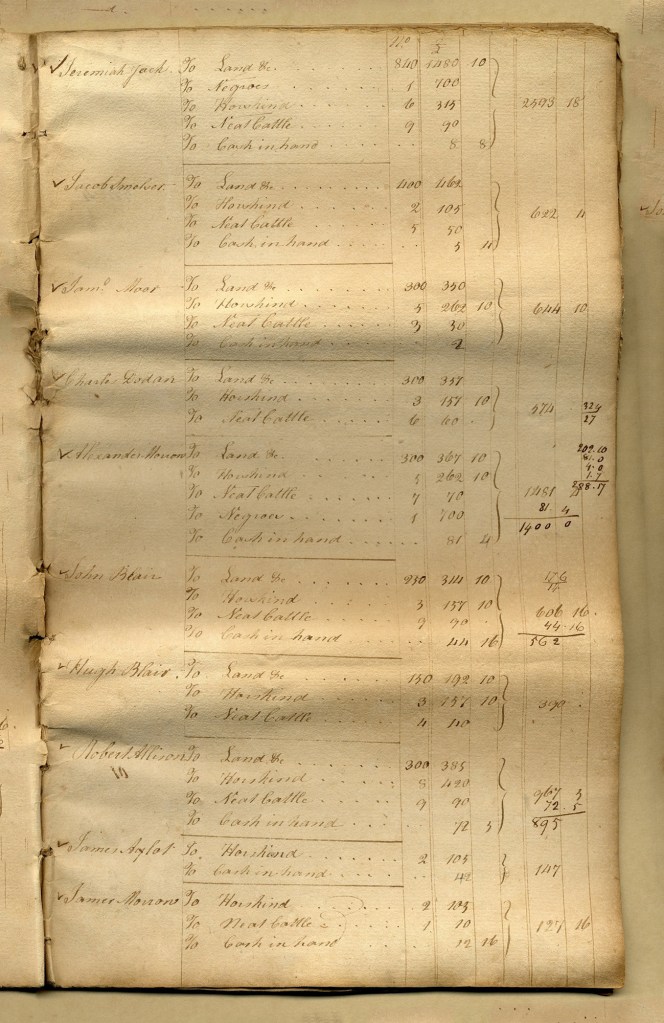 No £
Jeremiah Jack To Land &c 840 1480 10
To Negroes 1 700
To Horskind 6 315 2593 18
To Neat Cattle 9 90
To Cash in hand 8 8
Jacob Smelser To Land &c 400 462
To Horskind 2 105 622 4
To Neat Cattle 5 50
To Cash in hand 5 4
Jams Moor To Land &c 300 350
To Horskind 5 262 10 644 10
To Neat Cattle 3 30
To Cash in hand 2
Charles Dodan To Land &c 300 357
To Horskind 3 157 10 574
To Neat Cattle 6 60 27
Alexander Morrow To Land &c 300 367 10 202.10
To Horskind 5 262 10
To Neat Cattle 7 70 1481 288.17
To Negroes 1 700 81 4
To Cash in hand 81 4 1400 0
John Blair To Land &c 230 314 10
To Horskind 3 157 10 606 16
To Neat Cattle 9 90 44.16
To Cash in hand 44 16 562
Hugh Blair To Land &c 150 192 10
To Horskind 3 157 10 390
To Neat Cattle 4 40
Robert Allison To Land &c 300 385
10 To Horskind 8 420
To Neat Cattle 9 90 967 5
To Cash in hand 72 5 72.5
895
James To Horskind 2 105
To Cash in hand 42 147
James Morrow To Horskind 2 105
To Neat Cattle 1 10 127 16
To Cash in hand 12 16